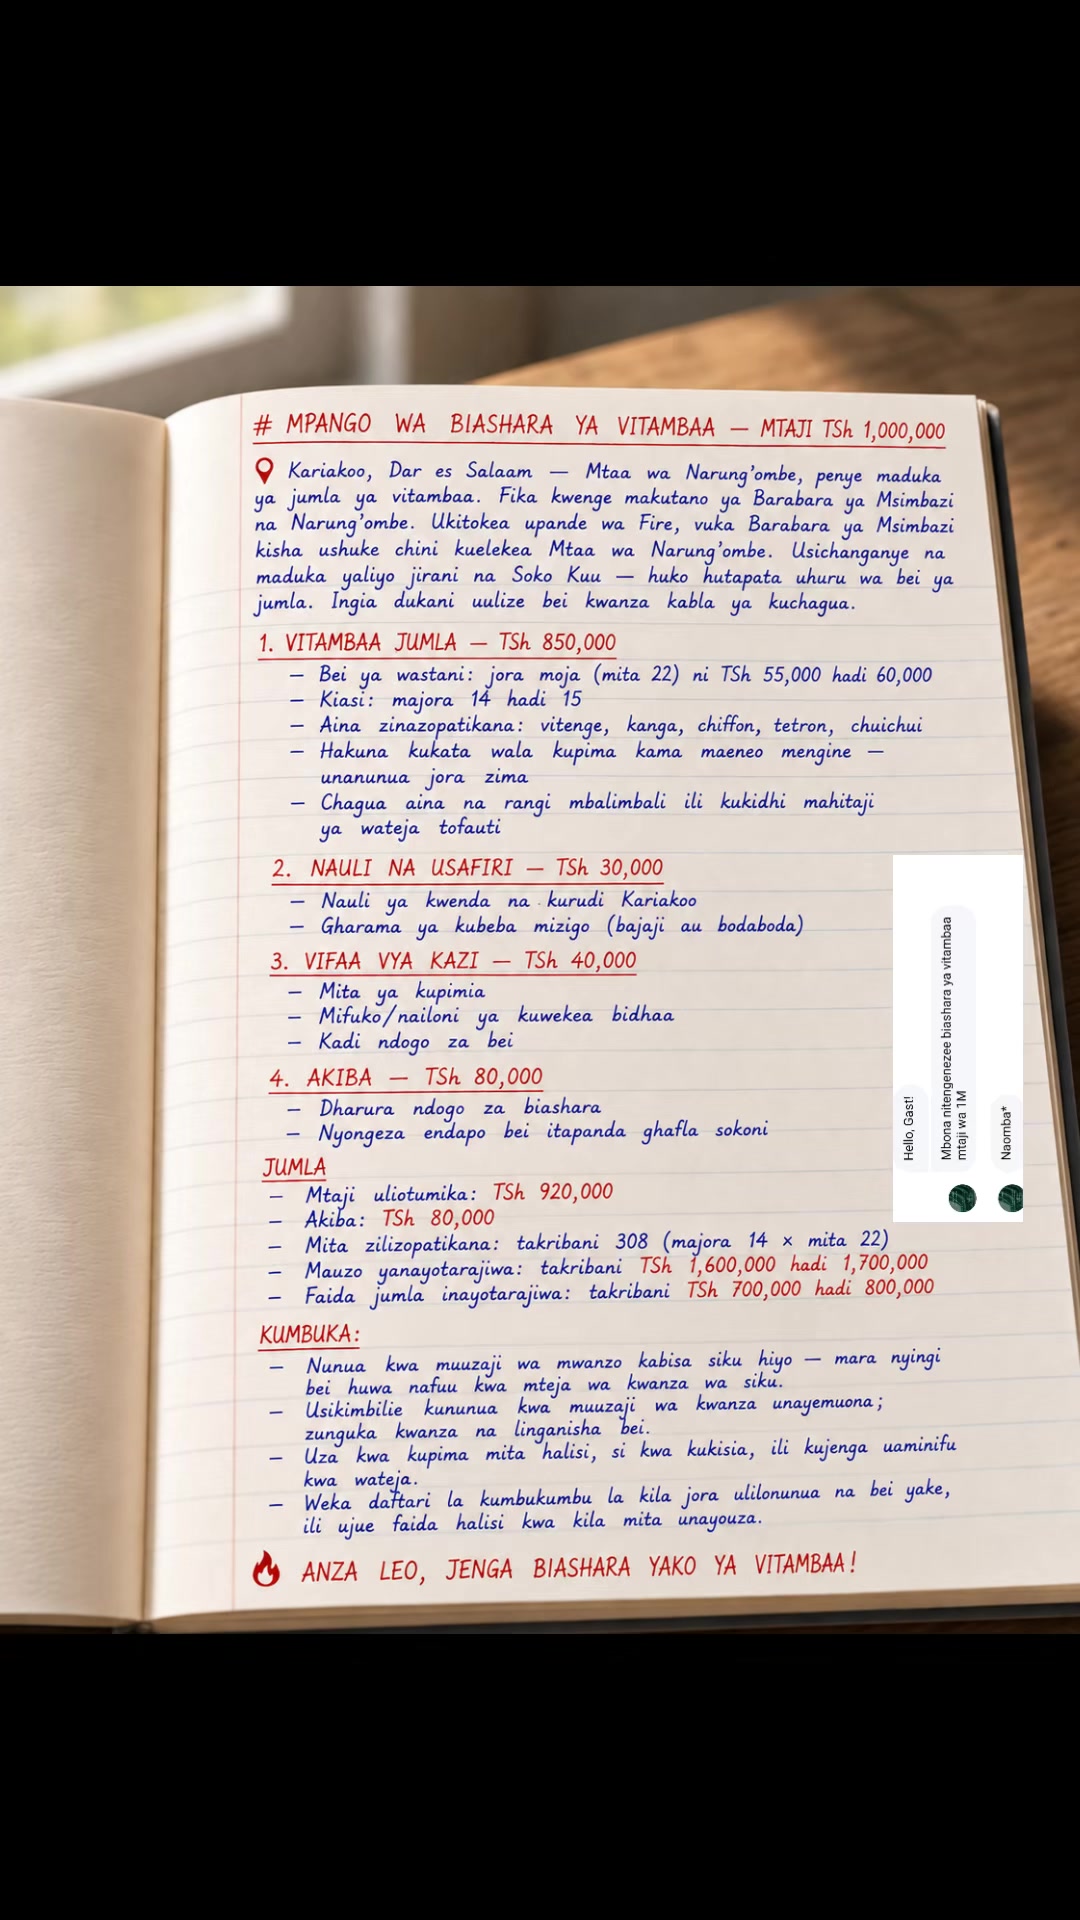 # MPANGO WA BIASHARA YA VITAMBAA — MTAJI TSh 1,000,000
Kariakoo, Dar es Salaam — Mtaa wa Narung'ombe, penye maduka
ya jumla ya vitambaa. Fika kwenge makutano ya Barabara ya Msimbazi
na Narung'ombe. Ukitokea upande wa Fire, vuka Barabara ya Msimbazi
kisha ushuke chini kuelekea Mtaa wa Narung'ombe. Usichanganye na
maduka yaliyo jirani na Soko Kuu — huko hutapata uhuru wa bei ya
jumla. Ingia dukani uulize bei kwanza kabla ya kuchagua.
1. VITAMBAA JUMLA — TSh 850,000
— Bei ya wastani: jora moja (mita 22) ni TSh 55,000 hadi 60,000
— Kiasi: majora 14 hadi 15
— Aina zinazopatikana: vitenge, kanga, chiffon, tetron, chuichui
— Hakuna kukata wala kupima kama maeneo mengine —
unanunua jora zima
— Chagua aina na rangi mbalimbali ili kukidhi mahitaji
ya wateja tofauti
2. NAULI NA USAFIRI — TSh 30,000
— Nauli ya kwenda na kurudi Kariakoo
— Gharama ya kubeba mizigo (bajaji au bodaboda)
3. VIFAA VYA KAZI — TSh 40,000
— Mita ya kupimia
— Mifuko/nailoni ya kuwekea bidhaa
— Kadi ndogo za bei
4. AKIBA — TSh 80,000
— Dharura ndogo za biashara
— Nyongeza endapo bei itapanda ghafla sokoni
JUMLA
— Mtaji uliotumika: TSh 920,000
— Akiba: TSh 80,000
— Mita zilizopatikana: takribani 308 (majora 14 × mita 22)
— Mauzo yanayotarajiwa: takribani TSh 1,600,000 hadi 1,700,000
— Faida jumla inayotarajiwa: takribani TSh 700,000 hadi 800,000
KUMBUKA:
— Nunua kwa muuzaji wa mwanzo kabisa siku hiyo — mara nyingi
bei huwa nafuu kwa mteja wa kwanza wa siku.
— Usikimbilie kununua kwa muuzaji wa kwanza unayemuona;
zunguka kwanza na linganisha bei.
— Uza kwa kupima mita halisi, si kwa kukisia, ili kujenga uaminifu
kwa wateja.
— Weka daftari la kumbukumbu la kila jora ulilonunua na bei yake,
ili ujue faida halisi kwa kila mita unayouza.
ANZA LEO, JENGA BIASHARA YAKO YA VITAMBAA!
Hello, Gast!
Mbona nitengenezee biashara ya vitambaa
mtaji wa 1M
Naomba*